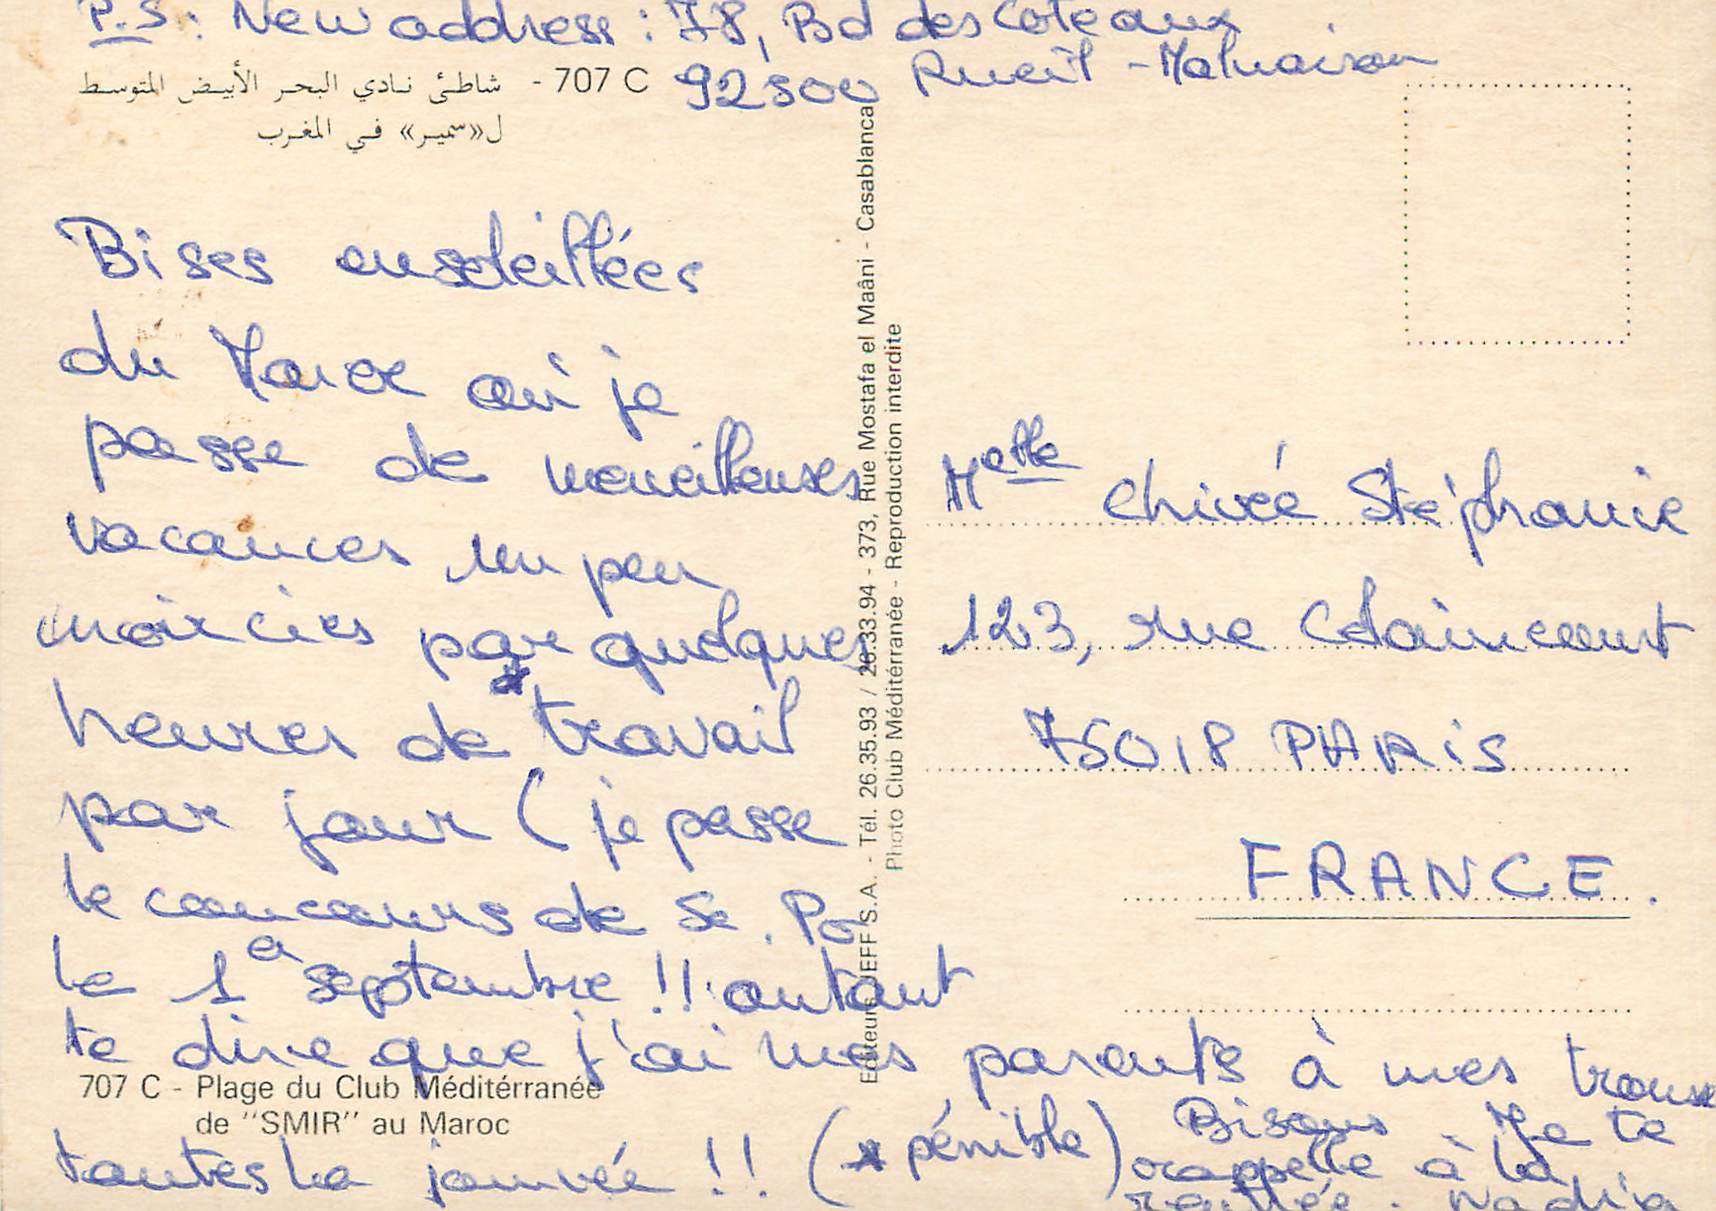 P.S: New address : 78, Bd des Coteaux
92500 Rueil - Malmaison
شاطئ نادي البحر الأبيض المتوسط - 707 C
ل«سمير» في المغرب
Bises ensoleillées
du Maroc où je
passe de merveilleuses
vacances un peu
noircies par quelques
heures de * travail
par jour ( je passe
le concours de Sc. Po
le 1er septembre !! autant
te dire que j'ai mes parents à mes trousses
toutes la journée !! (* pénible) Bisous Je te
rappelle à la
rentrée. Nadia
707 C - Plage du Club Méditérranée
de "SMIR" au Maroc
Editeurs JEFF S.A. - Tél. 26.35.93 / 26.33.94 - 373, Rue Mostafa el Maâni - Casablanca
Photo Club Méditérranée - Reproduction interdite
Melle Chivée Stéphanie
123, rue Caulaincourt
75018 PARIS
FRANCE.